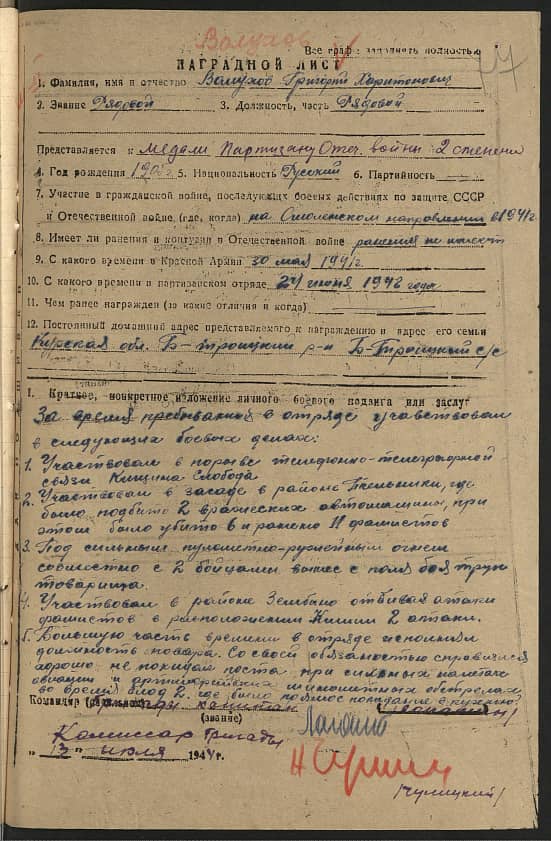 Волухов
Все графы заполнять полностью
НАГРАДНОЙ ЛИСТ
1. Фамилия, имя и отчество Волухов Григорий Харитонович
2. Звание Рядовой 3. Должность, часть Рядовой
Представляется к медали Партизану Отеч. войны 2 степени
4. Год рождения 5. Национальность Русский 6. Партийность
7. Участие в гражданской войне, последующих боевых действиях по защите СССР
и Отечественной войне (где, когда) на Смоленском направлении в 1941г
8. Имеет ли ранения и контузии в Отечественной войне ранения не имеет
9. С какого времени в Красной Армии 30 мая 1941г.
10. С какого времени в партизанском отряде 24 июня 1942 года
11. Чем ранее награжден (за какие отличия и когда)
12. Постоянный домашний адрес представляемого к награждению и адрес его семьи
Курская обл. Б-Троицкий р-н Б-Троицкий с/с
1. Краткое, конкретное изложение личного боевого подвига или заслуг
За время пребывания в отряде учавствовал
в следующих боевых делах:
1. Участвовал в порыве телефонно-телеграфной
связи Слобода
2. Участвовал в засаде в районе где
было подбито 2 вражеских автомашины, при
этом было убито 6 и ранено 11 фашистов
3. Под сильным пулеметно-ружейным огнем
совместно с 2 бойцами вынес с поля боя труп
товарища.
4. Участвовал в районе Зембино отбивая атаки
фашистов в расположении 2 атаки.
5. Большую часть времени в отряде исполнял
должность повара. Со своей обязаностью справлялся
хорошо не покидая поста при сильных налетах
авиации и артиллерийских минометных обстрелах
во время 2. где было прямое попадание в кухню.
Командир бригады капитан
(звание)
Комиссар бригады
„13" июля 1944г.